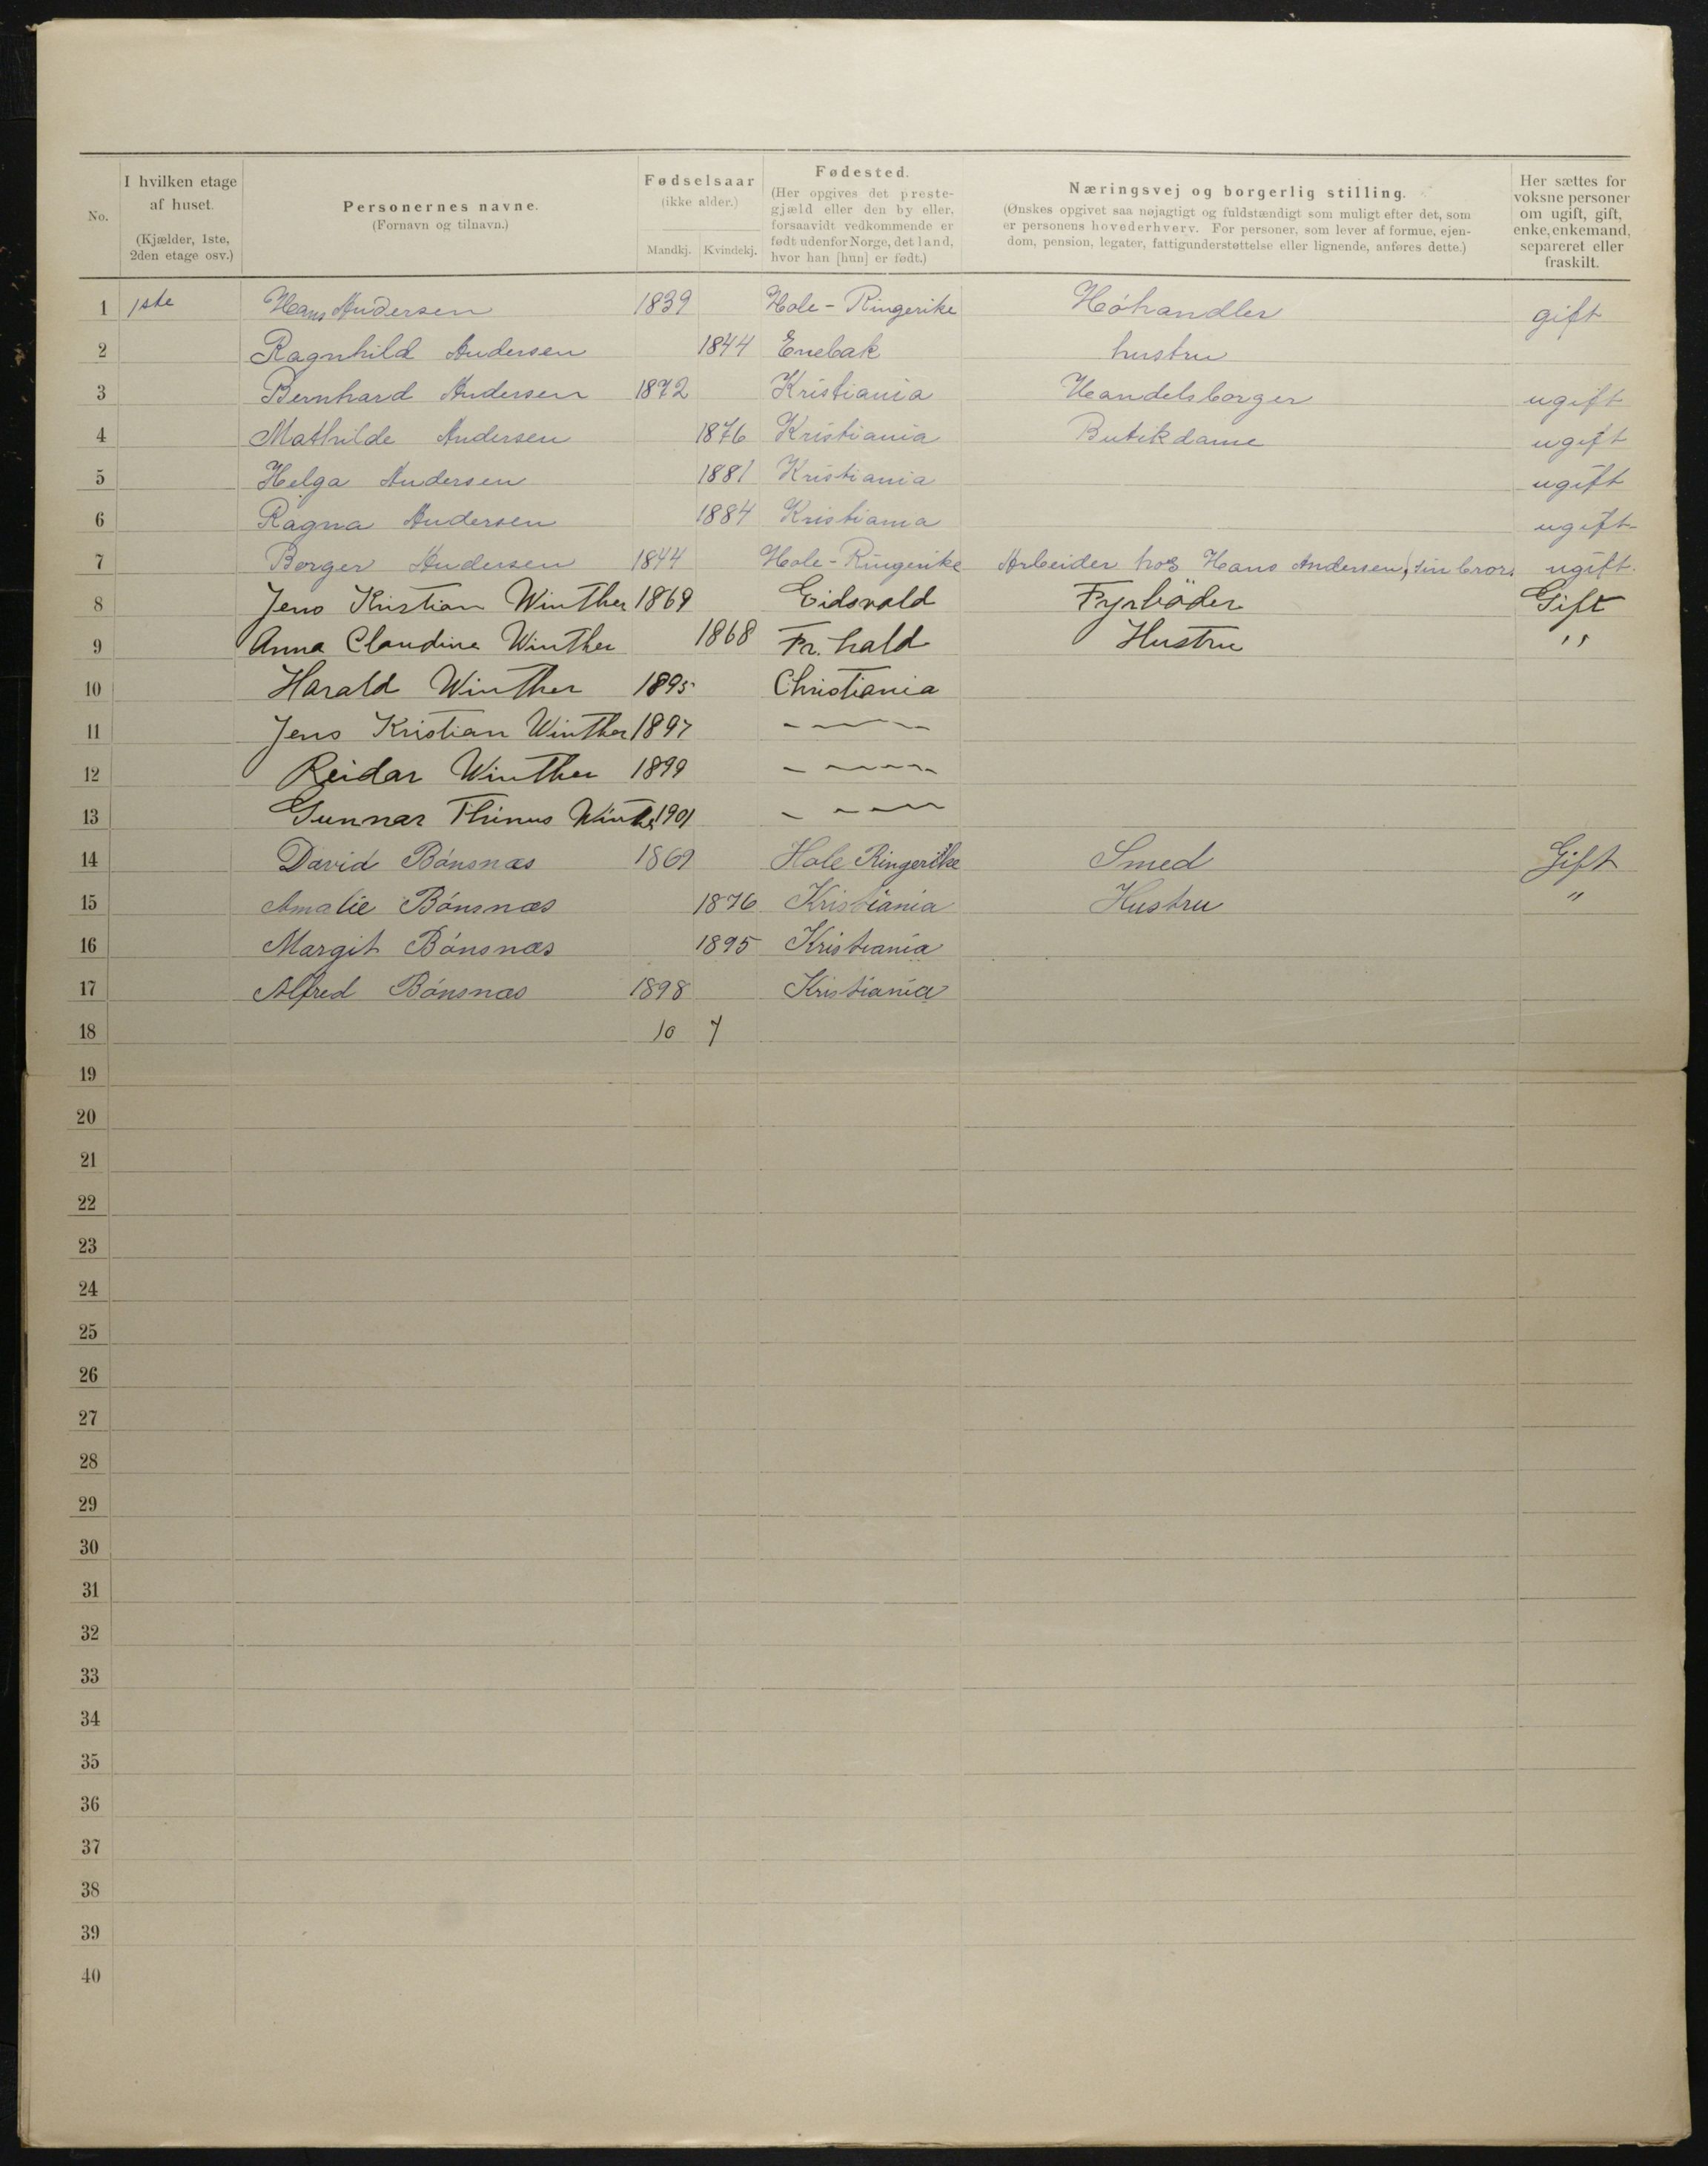 No.
I hvilken etage af huset. (Kjælder, 1ste, 2den etage osv.)
Personernes navne. (Fornavn og tilnavn.)
Fødselsaar (ikke alder.) Mandkj. Kvindekj.
Fødested. (Her opgives det prestegjæld eller den by eller, forsaavidt vedkommende er født udenfor Norge, det land, hvor han [hun] er født.)
Næringsvej og borgerlig stilling. (Ønskes opgivet saa nøjagtigt og fuldstændigt som muligt efter det, som er personens hovederhverv. For personer, som lever af formue, ejendom, pension, legater, fattigunderstøttelse eller lignende, anføres dette.)
Her sættes for voksne personer om ugift, gift, enke, enkemand, separeret eller fraskilt.
1 1ste Hans Andersen 1839 Hole - Ringerike Hóhandler gift
2 Ragnhild Andersen 1844 Enebak hustru
3 Bernhard Andersen 1872 Kristiania Handelsborger ugift
4 Mathilde Andersen 1876 Kristiania Butikdame ugift
5 Helga Andersen 1881 Kristiania ugift
6 Ragna Andersen 1884 Kristiania ugift
7 Borger Andersen 1844 Hole - Ringerike Arbeider hos Hans Andersen, sin bror. ugift.
8 Jens Kristian Winther 1869 Eidsvold Fyrböder Gift
9 Anna Claudine Winther 1868 Fr. hald Hustru "
10 Harald Winther 1895 Christiania
11 Jens Kristian Winther 1897 — — —
12 Reidar Winther 1899 — — —
13 Gunnar Thinus Winther 1901 — — —
14 David Bónsnæs 1869 Hole Ringerike Smed Gift
15 Amalie Bónsnæs 1876 Kristiania Hustru "
16 Margit Bónsnæs 1895 Kristiania
17 Alfred Bónsnæs 1898 Kristiania
18 10 7
19
20
21
22
23
24
25
26
27
28
29
30
31
32
33
34
35
36
37
38
39
40